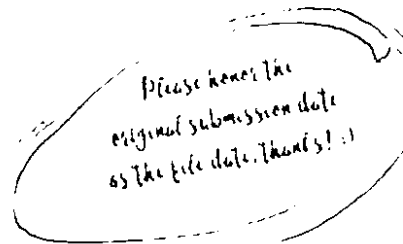 Please honor the
original submission date
as the file date. thanks! :)